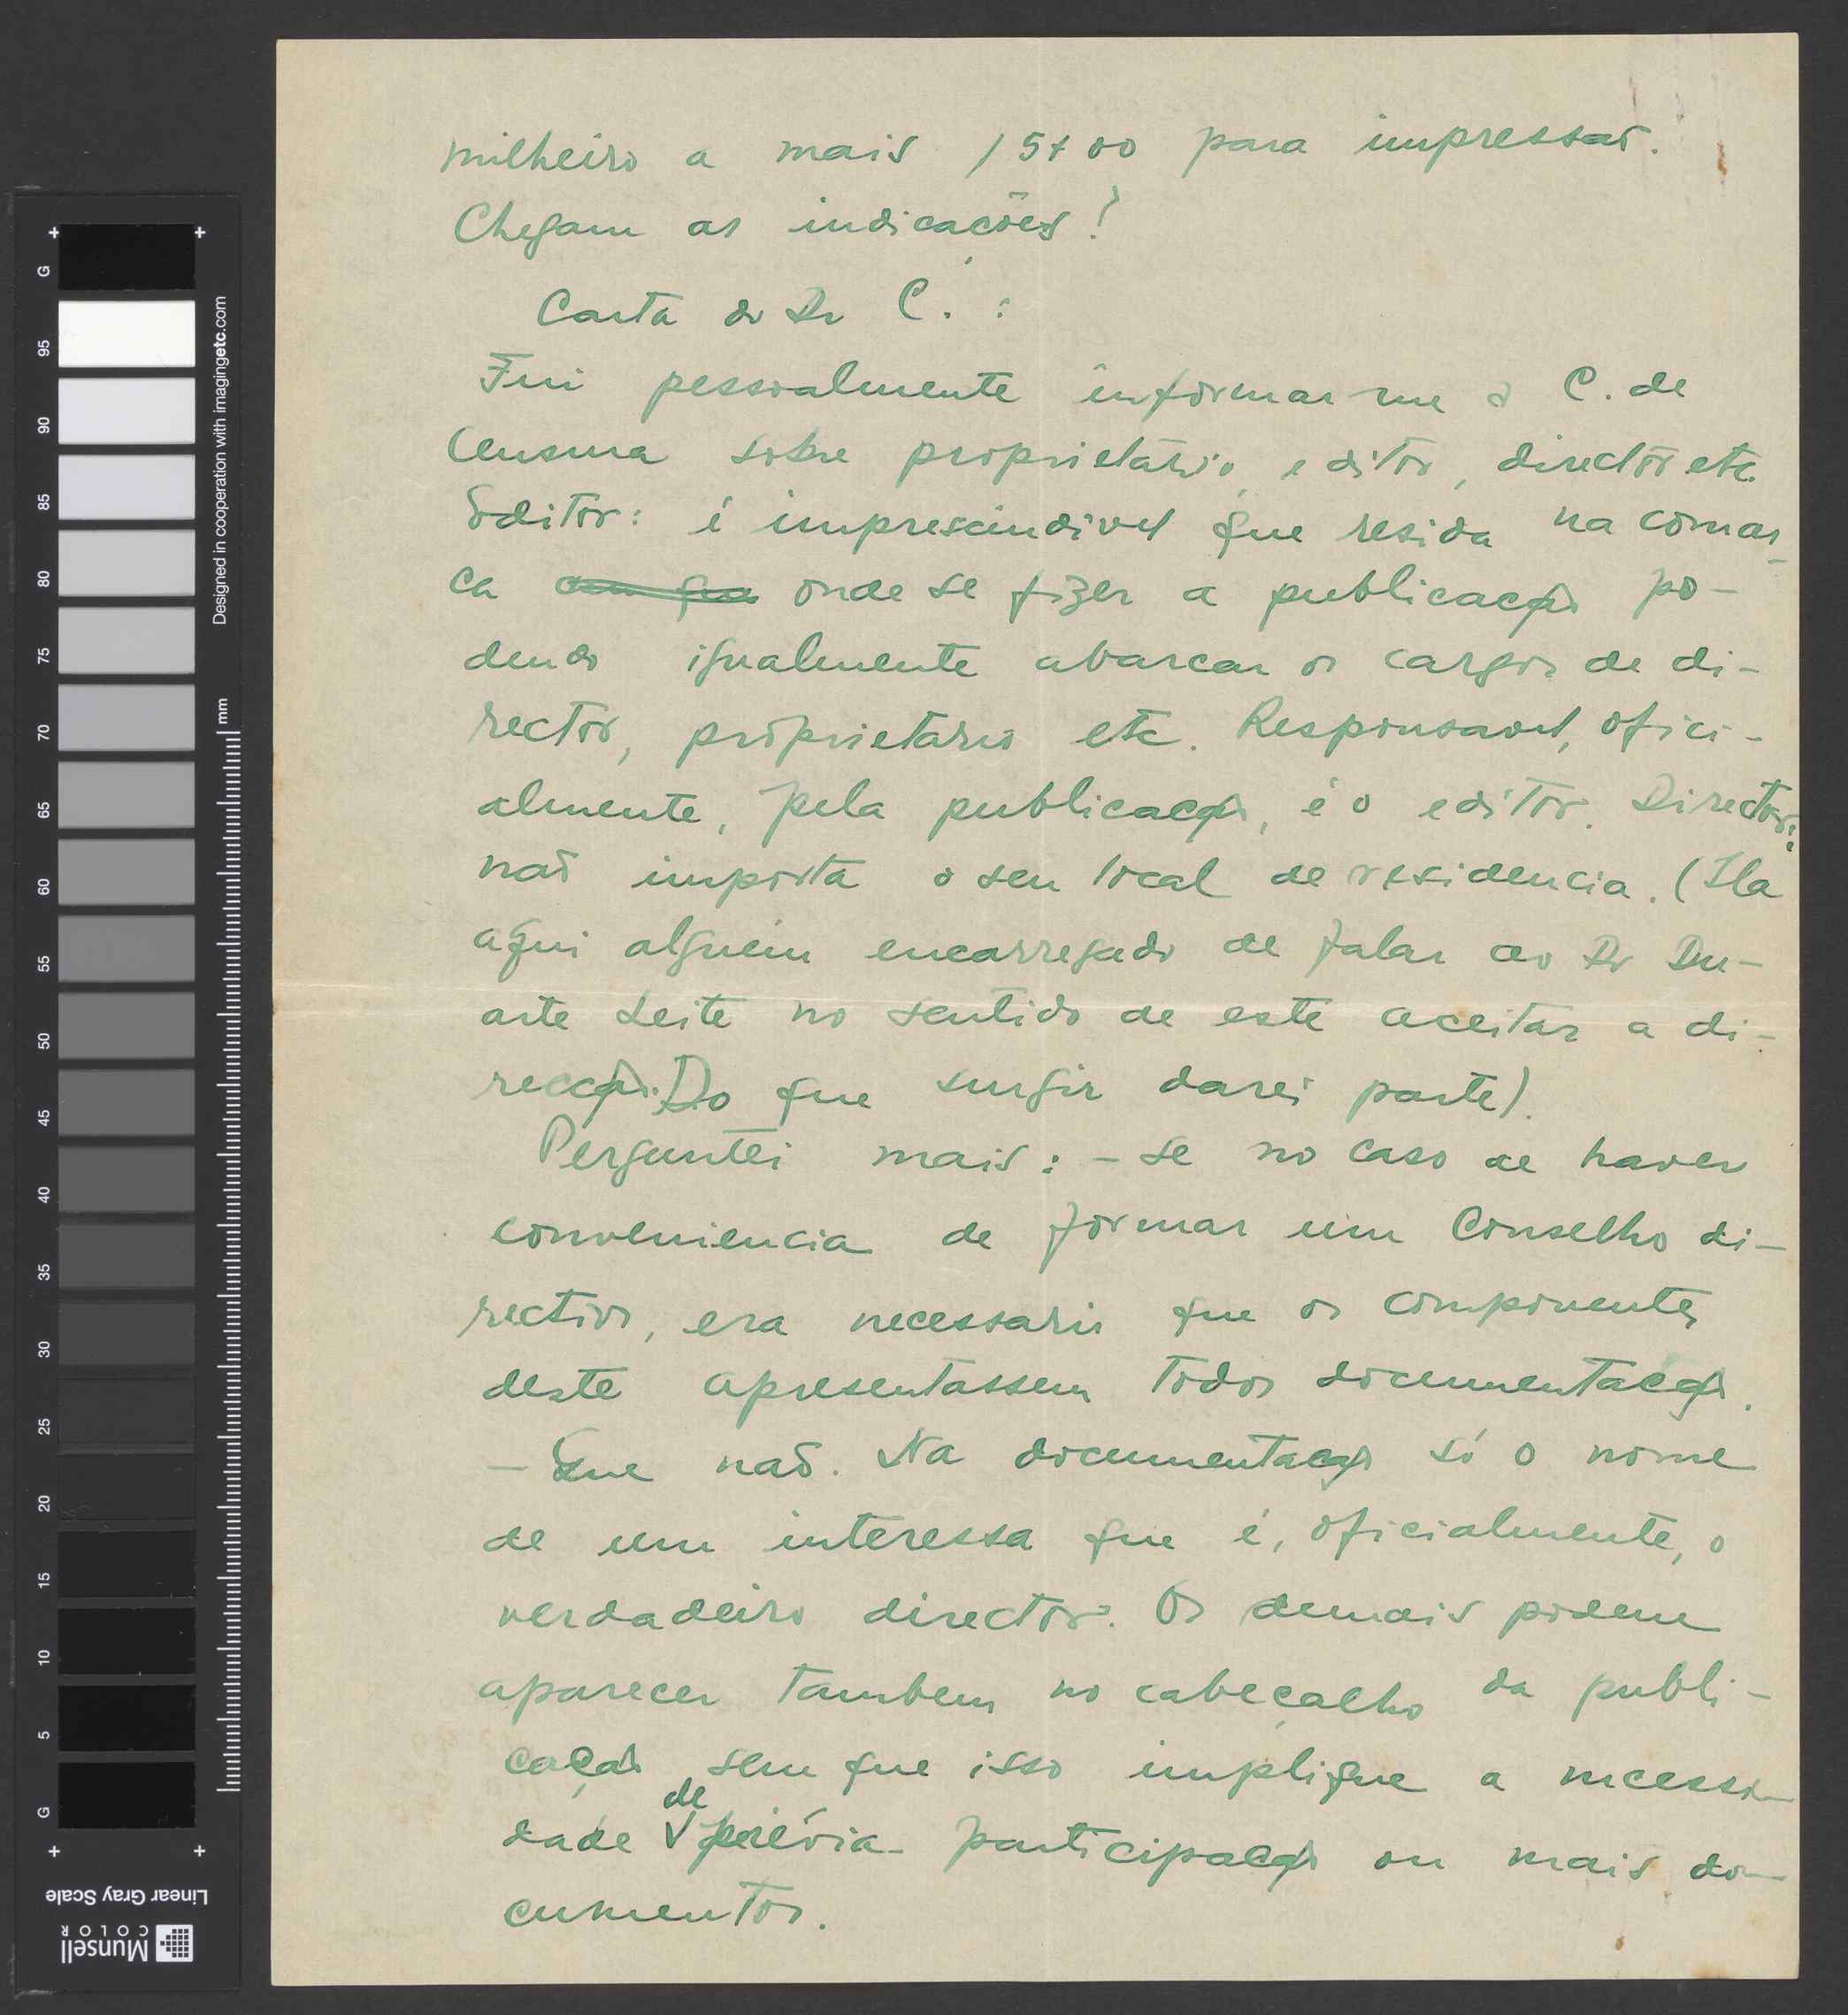 milheiro a mais 15$00 para impressaõ.
Chegam as indicações?
Carta do Dr C. :
Fui pessoalmente informar-me á C. de
Censura sobre proprietário, editor, director etc.
Editor: é imprescindivel que resida na comar-
ca onde se fizer a publicação po-
dendo igualmente abarcar os cargos de di-
rector, proprietario etc. Responsavel, ofici-
almente, pela publicação, é o editor. Director:
naõ importa o seu local de residencia. (Ha
aqui alguém encarregado de falar ao Dr Du-
arte Leite no sentido de este aceitar a di-
recção. Do que surgir darei parte).
Perguntei mais: – se no caso de haver
conveniencia de formar um Conselho di-
rectivo, era necessario que os componentes
deste apresentassem todos documentação.
– Que naõ. Na documentação só o nome
de um interessa que é, oficialmente, o
verdadeiro director. Os demais podem
aparecer tambem no cabeçalho da publi-
cação sem que isso implique a necessi-
dade de prévia participação ou mais do-
cumentos.
Designed in cooperation with imagingetc.com
mm
G 95 90 85 80 75 70 65 60 55 50 45 40 35 30 25 20 15 10 5 G
Linear Gray Scale
Munsell
COLOR